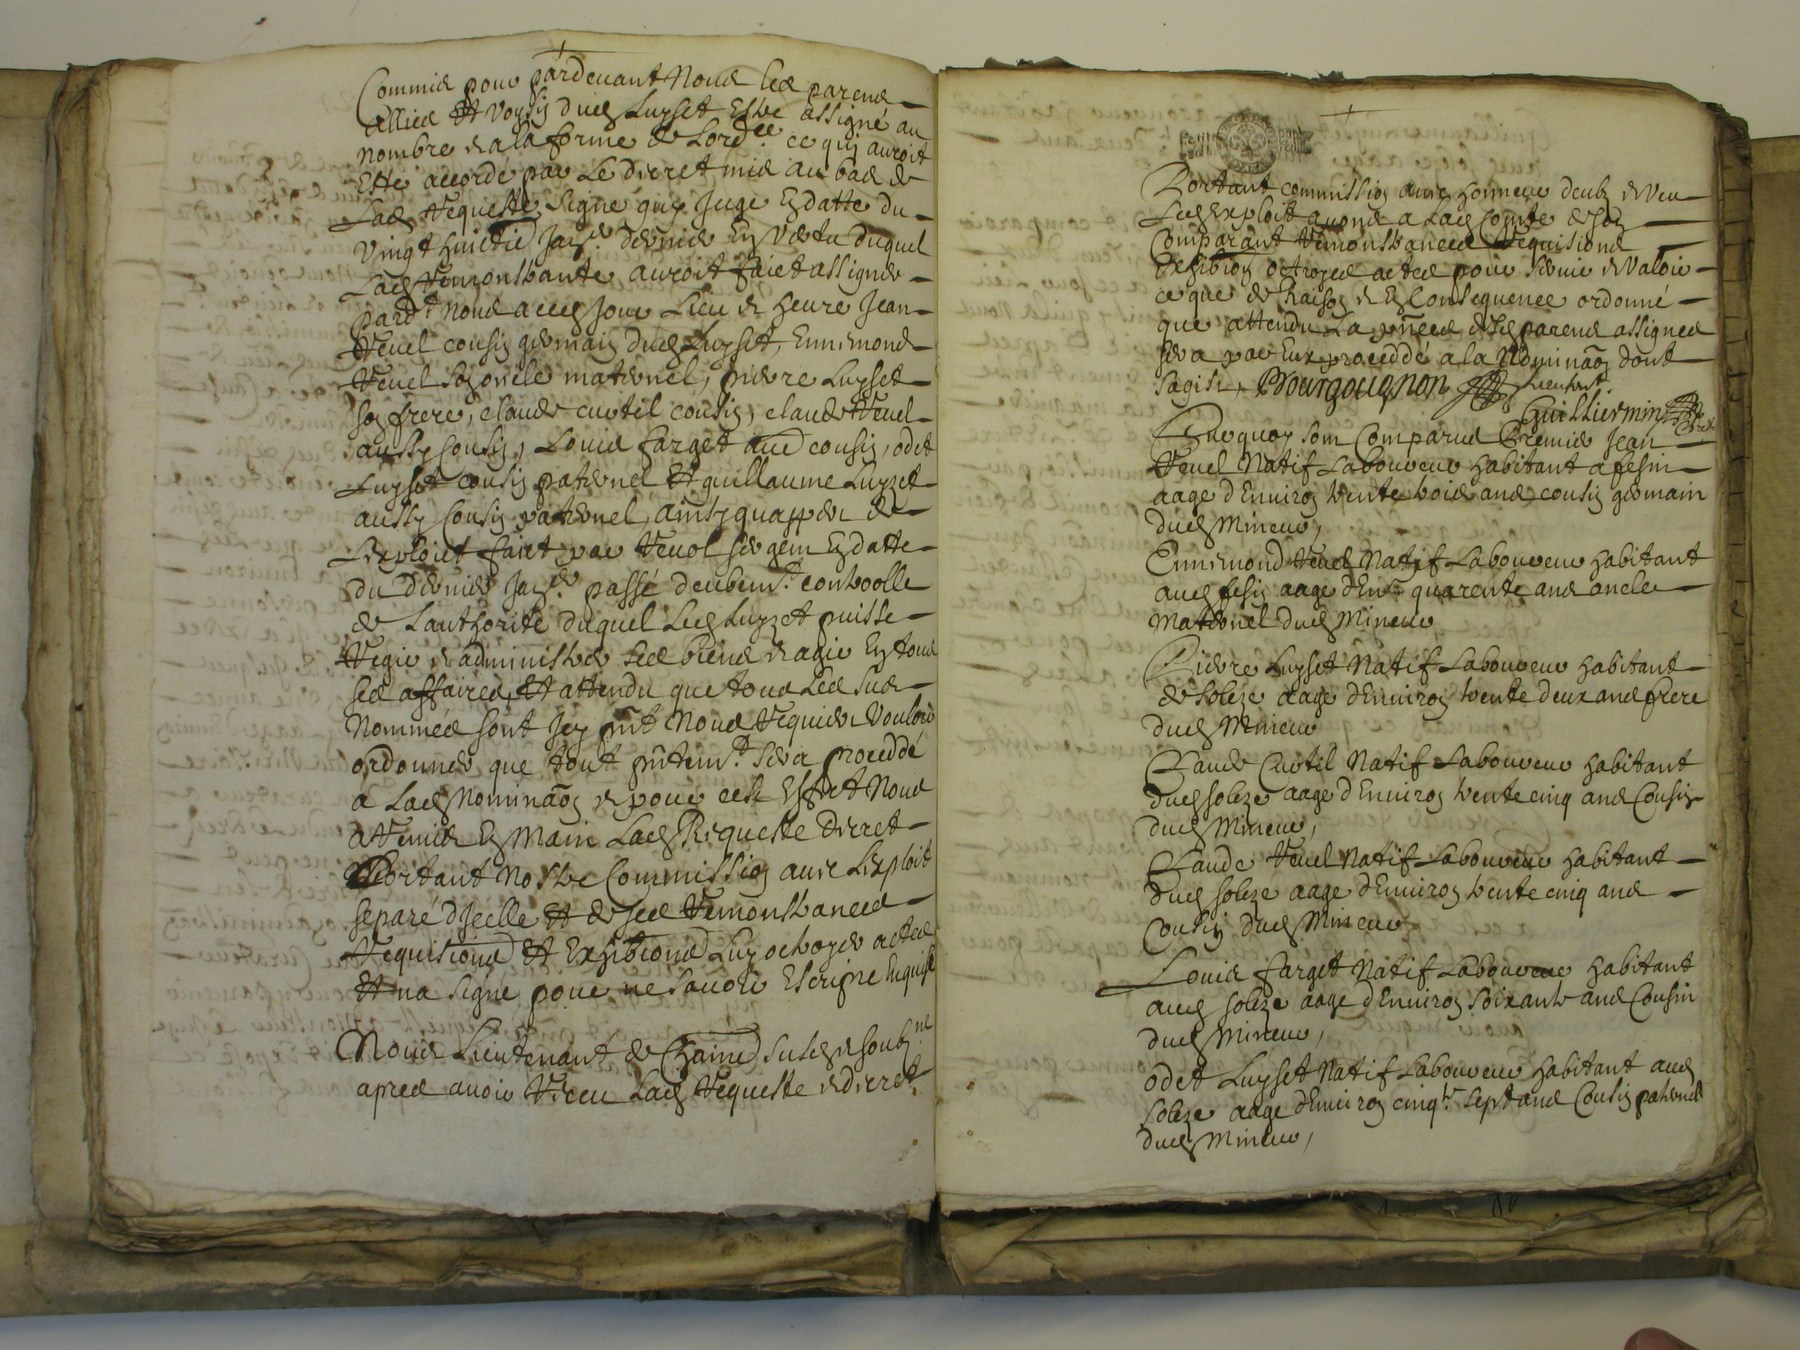 Commis pour pardevant Nous les parens
Allies et voysin dud Luyset Estre assigné au
nombre et a la forme de Lordce ce qui auroit
Esté accordé par Le decret mis au bas de
Lad Requeste signe Juge En datte du
vingt huictie Janr dernier En vertu duquel
Lad Remonstrante auroit faict assigner
pardt Nous a ces Jour Lieu et heure Jean
Revel cousin germain dud Luyset, Ennemond
Revel son oncle maternel, pierre Luyset
son frere, claude curtil cousin, claude Revel
aussy Cousin, Louis farget aussi cousin, odet
Luyset cousin paternel et guillaume Luyset
aussy Cousin paternel, ainsy quapper de
Lexploict faict par Revol sergent En datte
du dernier Janr passé deubemt controolle
de Lauthorité duquel Led Luyzet puisse
Regir et administrer ses biens et agir En tous
ses affaires, et attendu que tous Les sus
Nommés sont Icy pnt Nous Requier Vouloir
ordonner que tout pntemt sera proceddé
a Lad Nominaon et pour cest Effet Nous
a Remis En Main Lad Requeste decret
Portant Nostre Commission avec Lexploit
separé dIcelle et de ses Remonstrances
Requisitions et Exhibitions Luy octroyer actes
et na signe pour ne savoir Escripre Enquise
Nous Lieutenant de Chaines susd et soubne
apres avoir Receu Lad Requeste et decret
Portant commission avec honneur deub et veu
Led Exploit avons a Lad Comte de
Comparant Remonstrances Requisions
Exhibion octroyes actes pour servir et valoir
ce que de Raison et En Consequence ordonné
que attendu La pnces desd parens assignes
sera par Eux proceddé a la Nominaon dont
sagist, Bourgouignon Lieutent.
Guilliermin
Enquoy som Comparus Premier Jean
Revel Natif Laboureur habitant a fesin
aage dEnviron trente trois ans cousin germain
dud Mineur,
Ennemond Revel Natif Laboureur habitant
aud fesin aage dEnn quarente ans oncle
Maternel dud Mineur
Pierre Luyset Natif Laboureur habitant
de soleze aage dEnviron trente deux ans frere
dud Mineur
Claude Curtil Natif Laboureur habitant
dud soleze aage dEnviron trente cinq ans Cousin
dud Mineur,
Claude Revel Natif Laboureur habitant
dud soleze aage dEnviron trente cinq ans
Cousin dud Mineur
Louis farget Natif Laboureur habitant
aud soleze aage dEnviron soixante ans Cousin
dud Mineur,
odet Luyset Natif Laboureur habitant aud
soleze aage dEnviron cinqte sept ans Cousin paternel
dud Mineur,